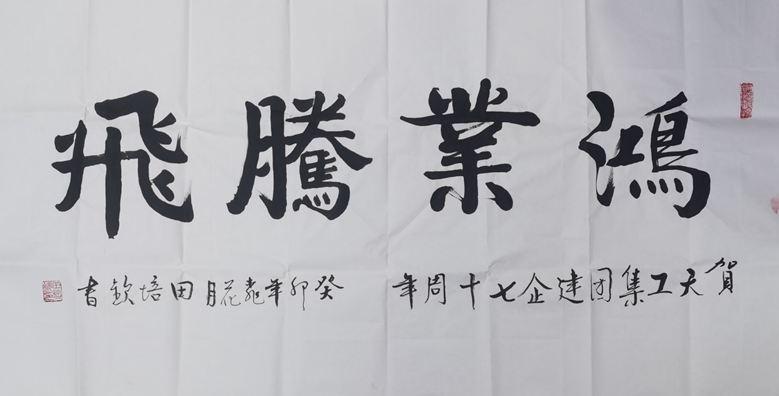 鴻業騰飛
賀天工集团建企七十周年 癸卯年桃花月田培欽書